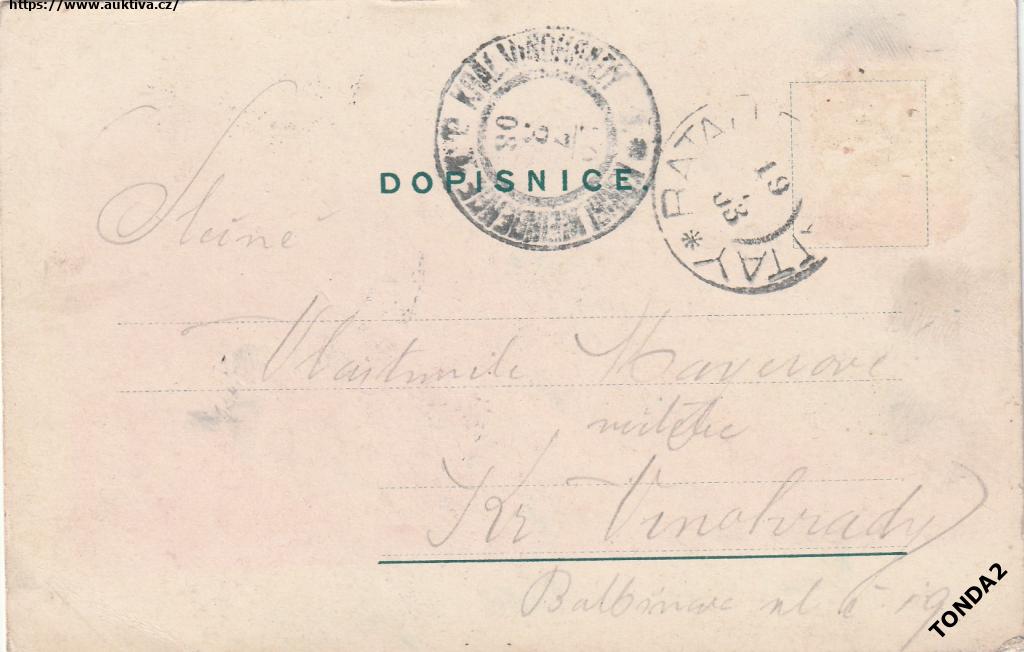 https://www.auktiva.cz/
KRÁL. VINOHRADY
DOPISNICE.
RATA
TTAY
19
03
Slečně
Vlastimile Mayerové
Kr Vinohrady
Balbínova ul č 19
TONDA2